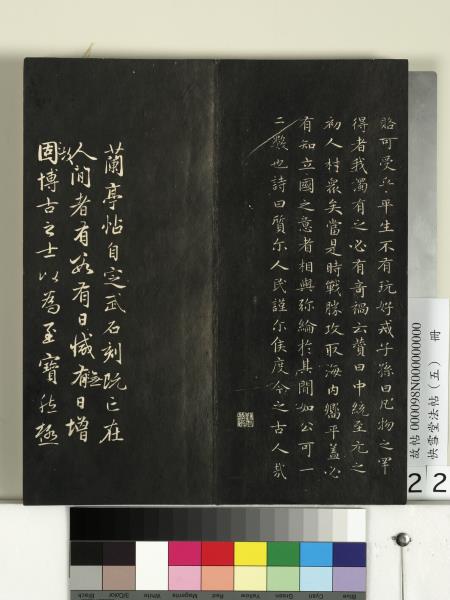 賂可受平生不有玩好戒子孫曰凡物之罕
得者我濁有之必有奇禍云贊曰中統至元之
初人材眾矣當是時戰勝攻取海內嚮平蓋必
有知立國之意者相與弥綸於其間如公可一
二數也詩曰質尔人民謹尔侯度今之古人哉
蘭亭帖自定武石刻既亡在
人間者有數有日減無日增
固故博古之士以為至寶然極
故帖 000098N000000000
快雪堂法帖（五） 冊
2 2
Black 3/Color White Magenta Red Yellow Green Cyan Blue